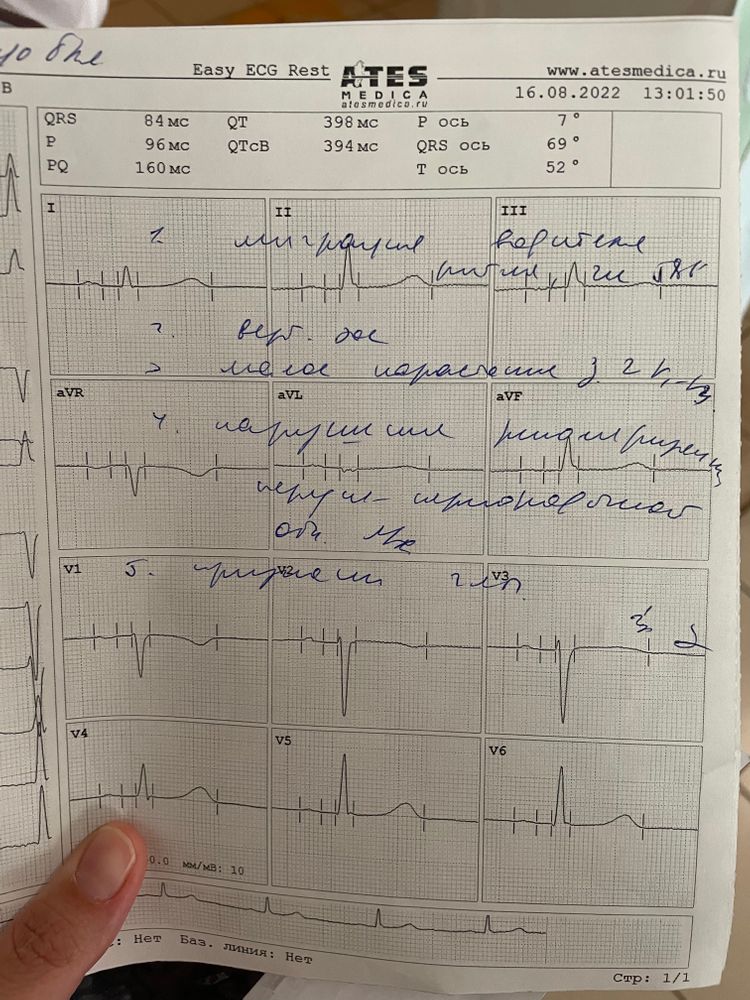 Easy ECG Rest
ATES
MEDICA
atesmedica.ru
www.atesmedica.ru
16.08.2022 13:01:50
В
QRS 84 мс QT 398 мс P ось 7°
P 96 мс QTcB 394 мс QRS ось 69°
PQ 160 мс T ось 52°
I II III
1. миграция водителя
ритма,
2. верт.
3 малое нарастание з. r V1-V3
aVR aVL aVF
4. нарушение реполяризации
обл.
V1 V2 V3
5. признаки
V4 V5 V6
0.0 мм/мВ: 10
: Нет Баз. линия: Нет
Стр: 1/1